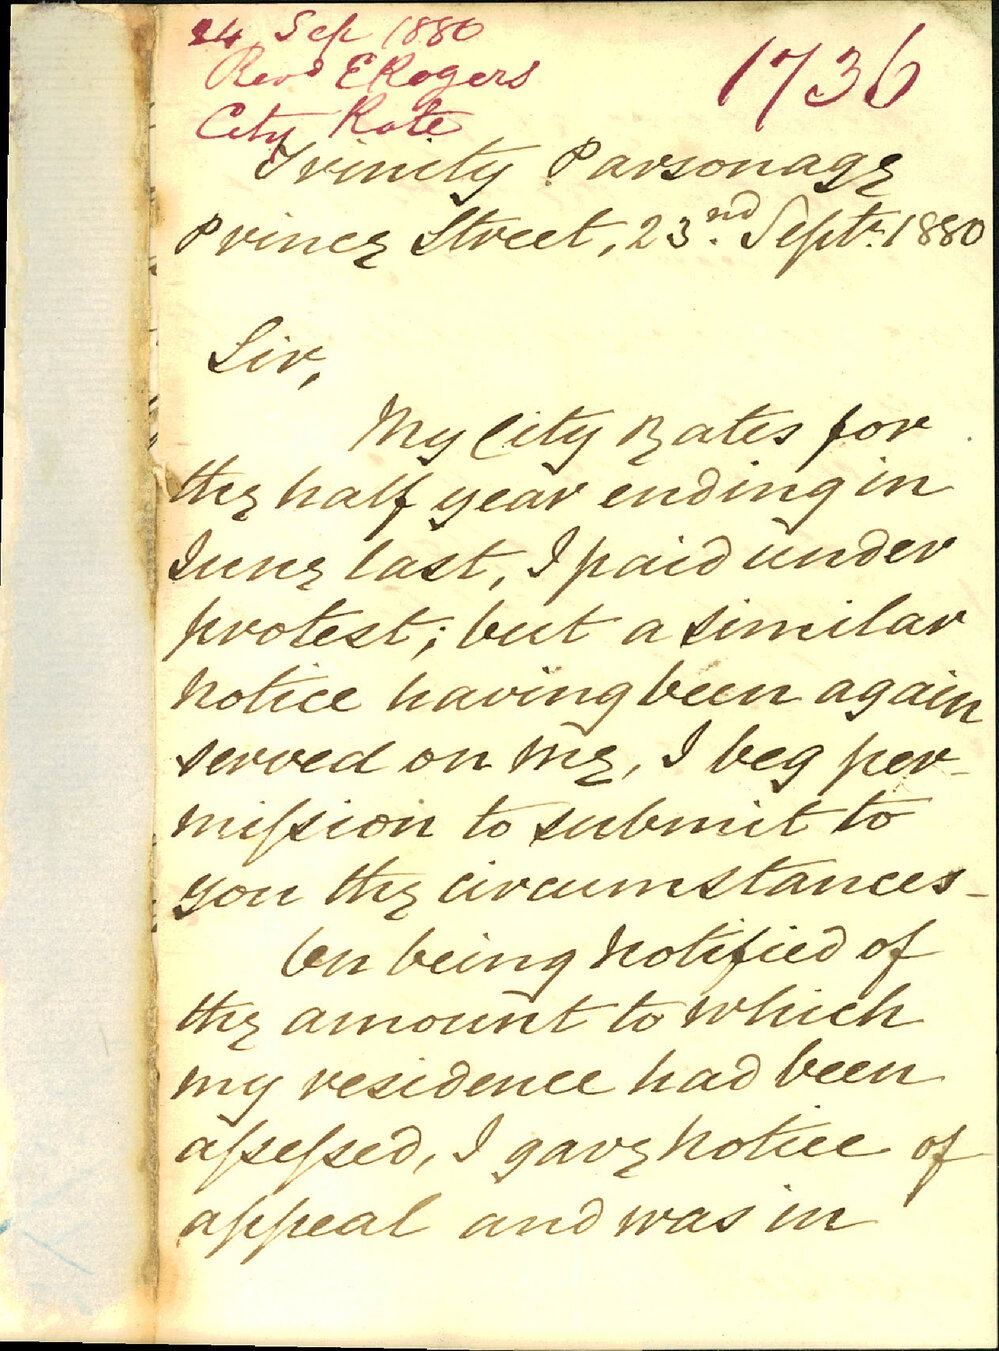 24 Sep 1880
Revd E Rogers
City Rate
1736
Trinity Parsonage
Prince Street, 23.nd Septr. 1880
Sir,
My City Rates for
the half year ending in
June last, I paid under
protest; but a similar
notice having been again
served on me, I beg per-
mission to submit to
you the circumstances-
On being notified of
the amount to which
my residence had been
assessed, I gave notice of
appeal and was in